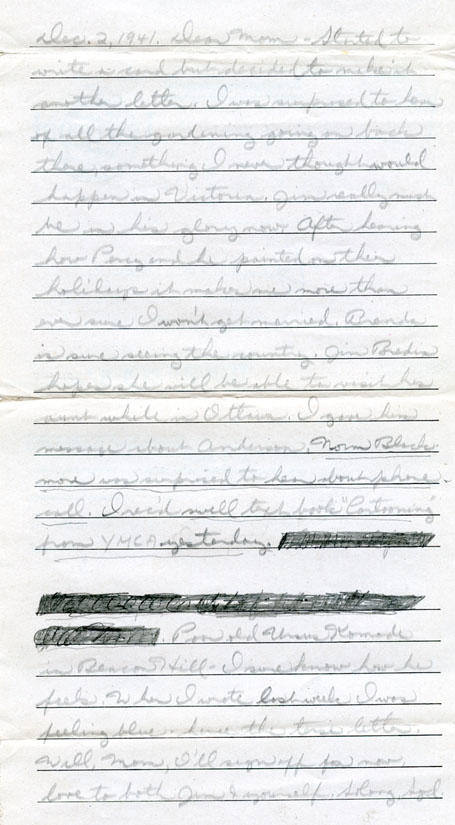 Dec. 2, 1941. Dear Mom - Started to
write a card but decided to make it
another letter. I was surprised to hear
of all the gardening going on back
there, something I never thought would
happen in Victoria. Jim really must
be in his glory now. After hearing
how Percy and he painted on their
holidays it makes me more than
ever sure I won't get married. Brenda
is sure seeing the country. Jim
hopes she will be able to visit his
aunt while in Ottawa. I gave him
message about Anderson. Norm Black-
more was surprised to hear about phone
call. I rec'd swell text book "Cartooning"
from YMCA yesterday.
Poor old Ursus Komode
in Beacon Hill - I sure know how he
feels. When I wrote last week I was
feeling blue - hence the terse letter.
Well, Mom, I'll sign off for now,
love to both Jim & yourself. So long,